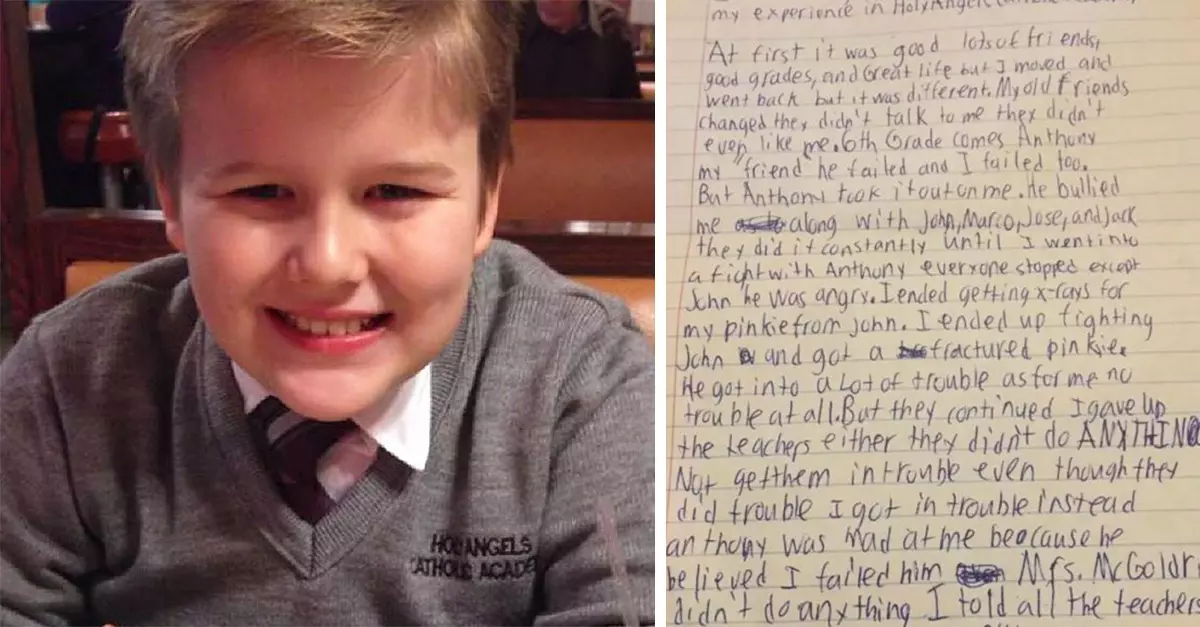 HOLY ANGELS
CATHOLIC ACADE
my experience in HolyAngels
At first it was good lots of friends,
good grades, and Great life but I moved and
went back but it was different. My old friends
changed they didn't talk to me they didn't
even like me. 6th Grade comes Anthony
my "friend" he failed and I failed too.
But Anthony took it out on me. He bullied
me along with John, Marco, Jose, and Jack
they did it constantly until I went into
a fight with Anthony everyone stopped except
John he was angry. I ended getting x-rays for
my pinkie from John. I ended up fighting
John and got a fractured pinkie.
He got into a Lot of trouble as for me no
trouble at all. But they continued I gave up
the teachers either they didn't do ANYTHING
Not get them in trouble even though they
did trouble I got in trouble instead
anthony was mad at me beocause he
believed I failed him Mrs. McGoldri
didn't do anything I told all the teachers